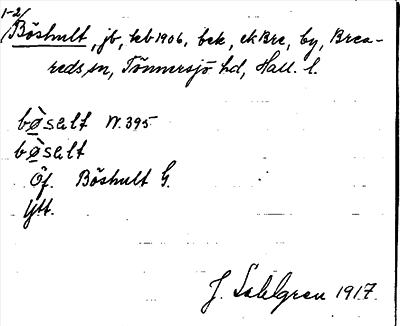 1-2/
Böshult, jb, kb 1906, bek, ekBre, by, Brea-
reds sn, Tönnersjö hd, Hall. l.
bø̀salt N. 395
bø̀salt
Öf. Böshult G.
Ytt.
J. Sahlgren 1917.